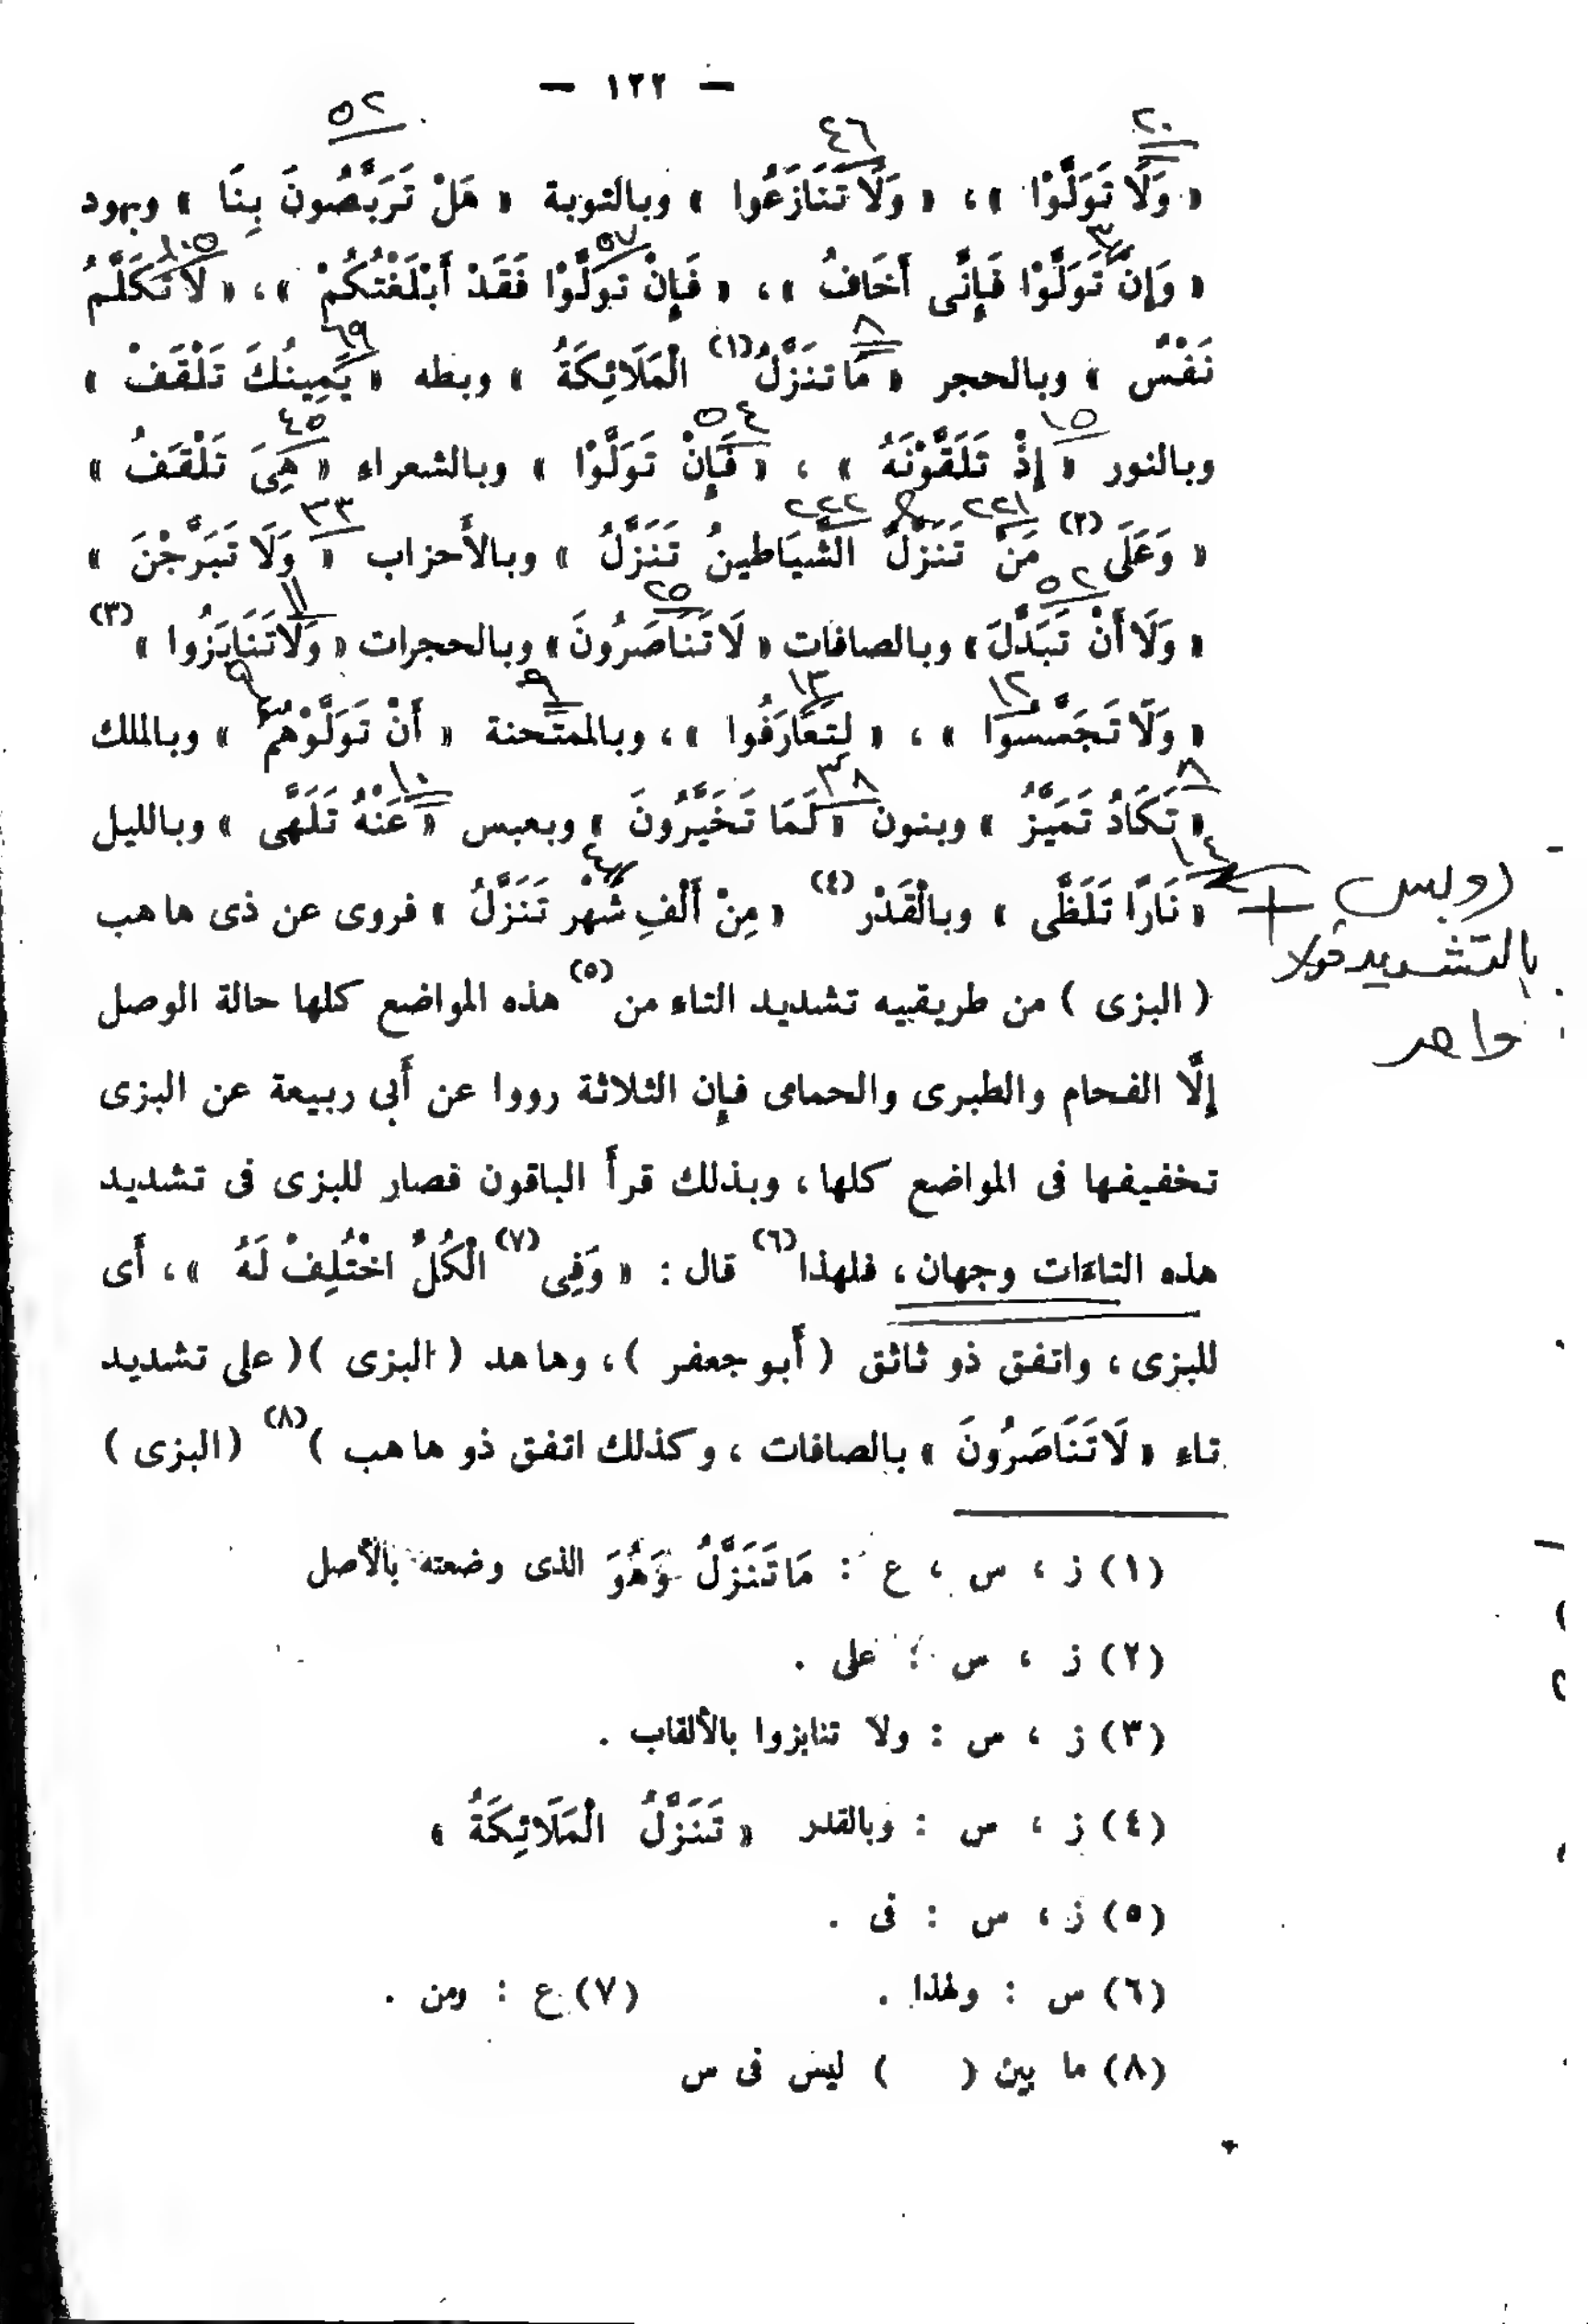 — ١٢٢ —
٥٢
٤٦
٢٠
« وَلَا تَوَلَّوْا »، « وَلَا تَنَازَعُوا » وبالتوبة « هَلْ تَرَبَّصُونَ بِنَا » وبهود
٣
٥٧
١٠٥
« وَإِنْ تَوَلَّوْا فَإِنِّى أَخَافُ »، « فَإِنْ تَوَلَّوْا فَقَدْ أَبْلَغْتُكُمْ »، « لَا تَكَلَّمُ
٨
٦٩
نَفْسٌ » وبالحجر « مَا تَنَزَّلُ (١) الْمَلَائِكَةُ » وبطه « يَمِينُكَ تَلْقَفْ »
١٥
٥٤
٤٥
وبالنور « إِذْ تَلَقَّوْنَهُ » ، « فَإِنْ تَوَلَّوْا » وبالشعراء « هِىَ تَلْقَفُ »
٢٢١
٢٢٢
٣٣
« وَعَلَى (٢) مَنْ تَنَزَّلُ الشَّيَاطِينُ تَنَزَّلُ » وبالأَحزاب « وَلَا تَبَرَّجْنَ »
٥٢
٢٥
١١
« وَلَا أَنْ تَبَدَّلَ » وبالصافات « لَا تَنَاصَرُونَ » وبالحجرات « وَلَا تَنَابَزُوا » (٣)
١٢
١٣
٩
« وَلَا تَجَسَّسُوا » ، « لِتَعَارَفُوا »، وبالممتحنة « أَنْ تَوَلَّوْهُمْ » وبالملك
٨
٣٨
١٠
« تَكَادُ تَمَيَّزُ » وبنون « لَمَا تَخَيَّرُونَ » وبعبس « عَنْهُ تَلَهَّى » وبالليل
١٤
٤
« نَارًا تَلَظَّى » وبالْقَدْر (٤) « مِنْ أَلْفِ شَهْر تَنَزَّلُ » فروى عن ذى ها هب
+ رويس
بالتشديد قولا
واحد
( البزى ) من طريقيه تشديد التاء من (٥) هذه المواضع كلها حالة الوصل
إلَّا الفحام والطبرى والحمامى فإن الثلاثة رووا عن أَبى ربيعة عن البزى
تخفيفها فى المواضع كلها ، وبذلك قرأَ الباقون فصار للبزى فى تشديد
هذه التاءَات وجهان ، فلهذا (٦) قال : « وَفِى (٧) الْكُلِّ اخْتُلِفْ لَهُ »، أَى
للبزى ، واتفق ذو ثاثق ( أَبو جعفر )، وها هد ( البزى )( على تشديد
تاء « لَا تَنَاصَرُونَ » بالصافات ، وكذلك اتفق ذو ها هب ) (٨) (البزى )
(١) ز ، س ، ع : مَا تَنَزَّلُ وَهُوَ الذى وضعته بالأصل
(٢) ز ، س : على .
(٣) ز ، س : ولا تنابزوا بالألقاب .
(٤) ز ، س : وبالقدر « تَنَزَّلُ الْمَلَائِكَةُ »
(٥) ز ، س : فى .
(٦) س : ولهذا . (٧) ع : ومن .
(٨) ما بين ( ) ليس فى س